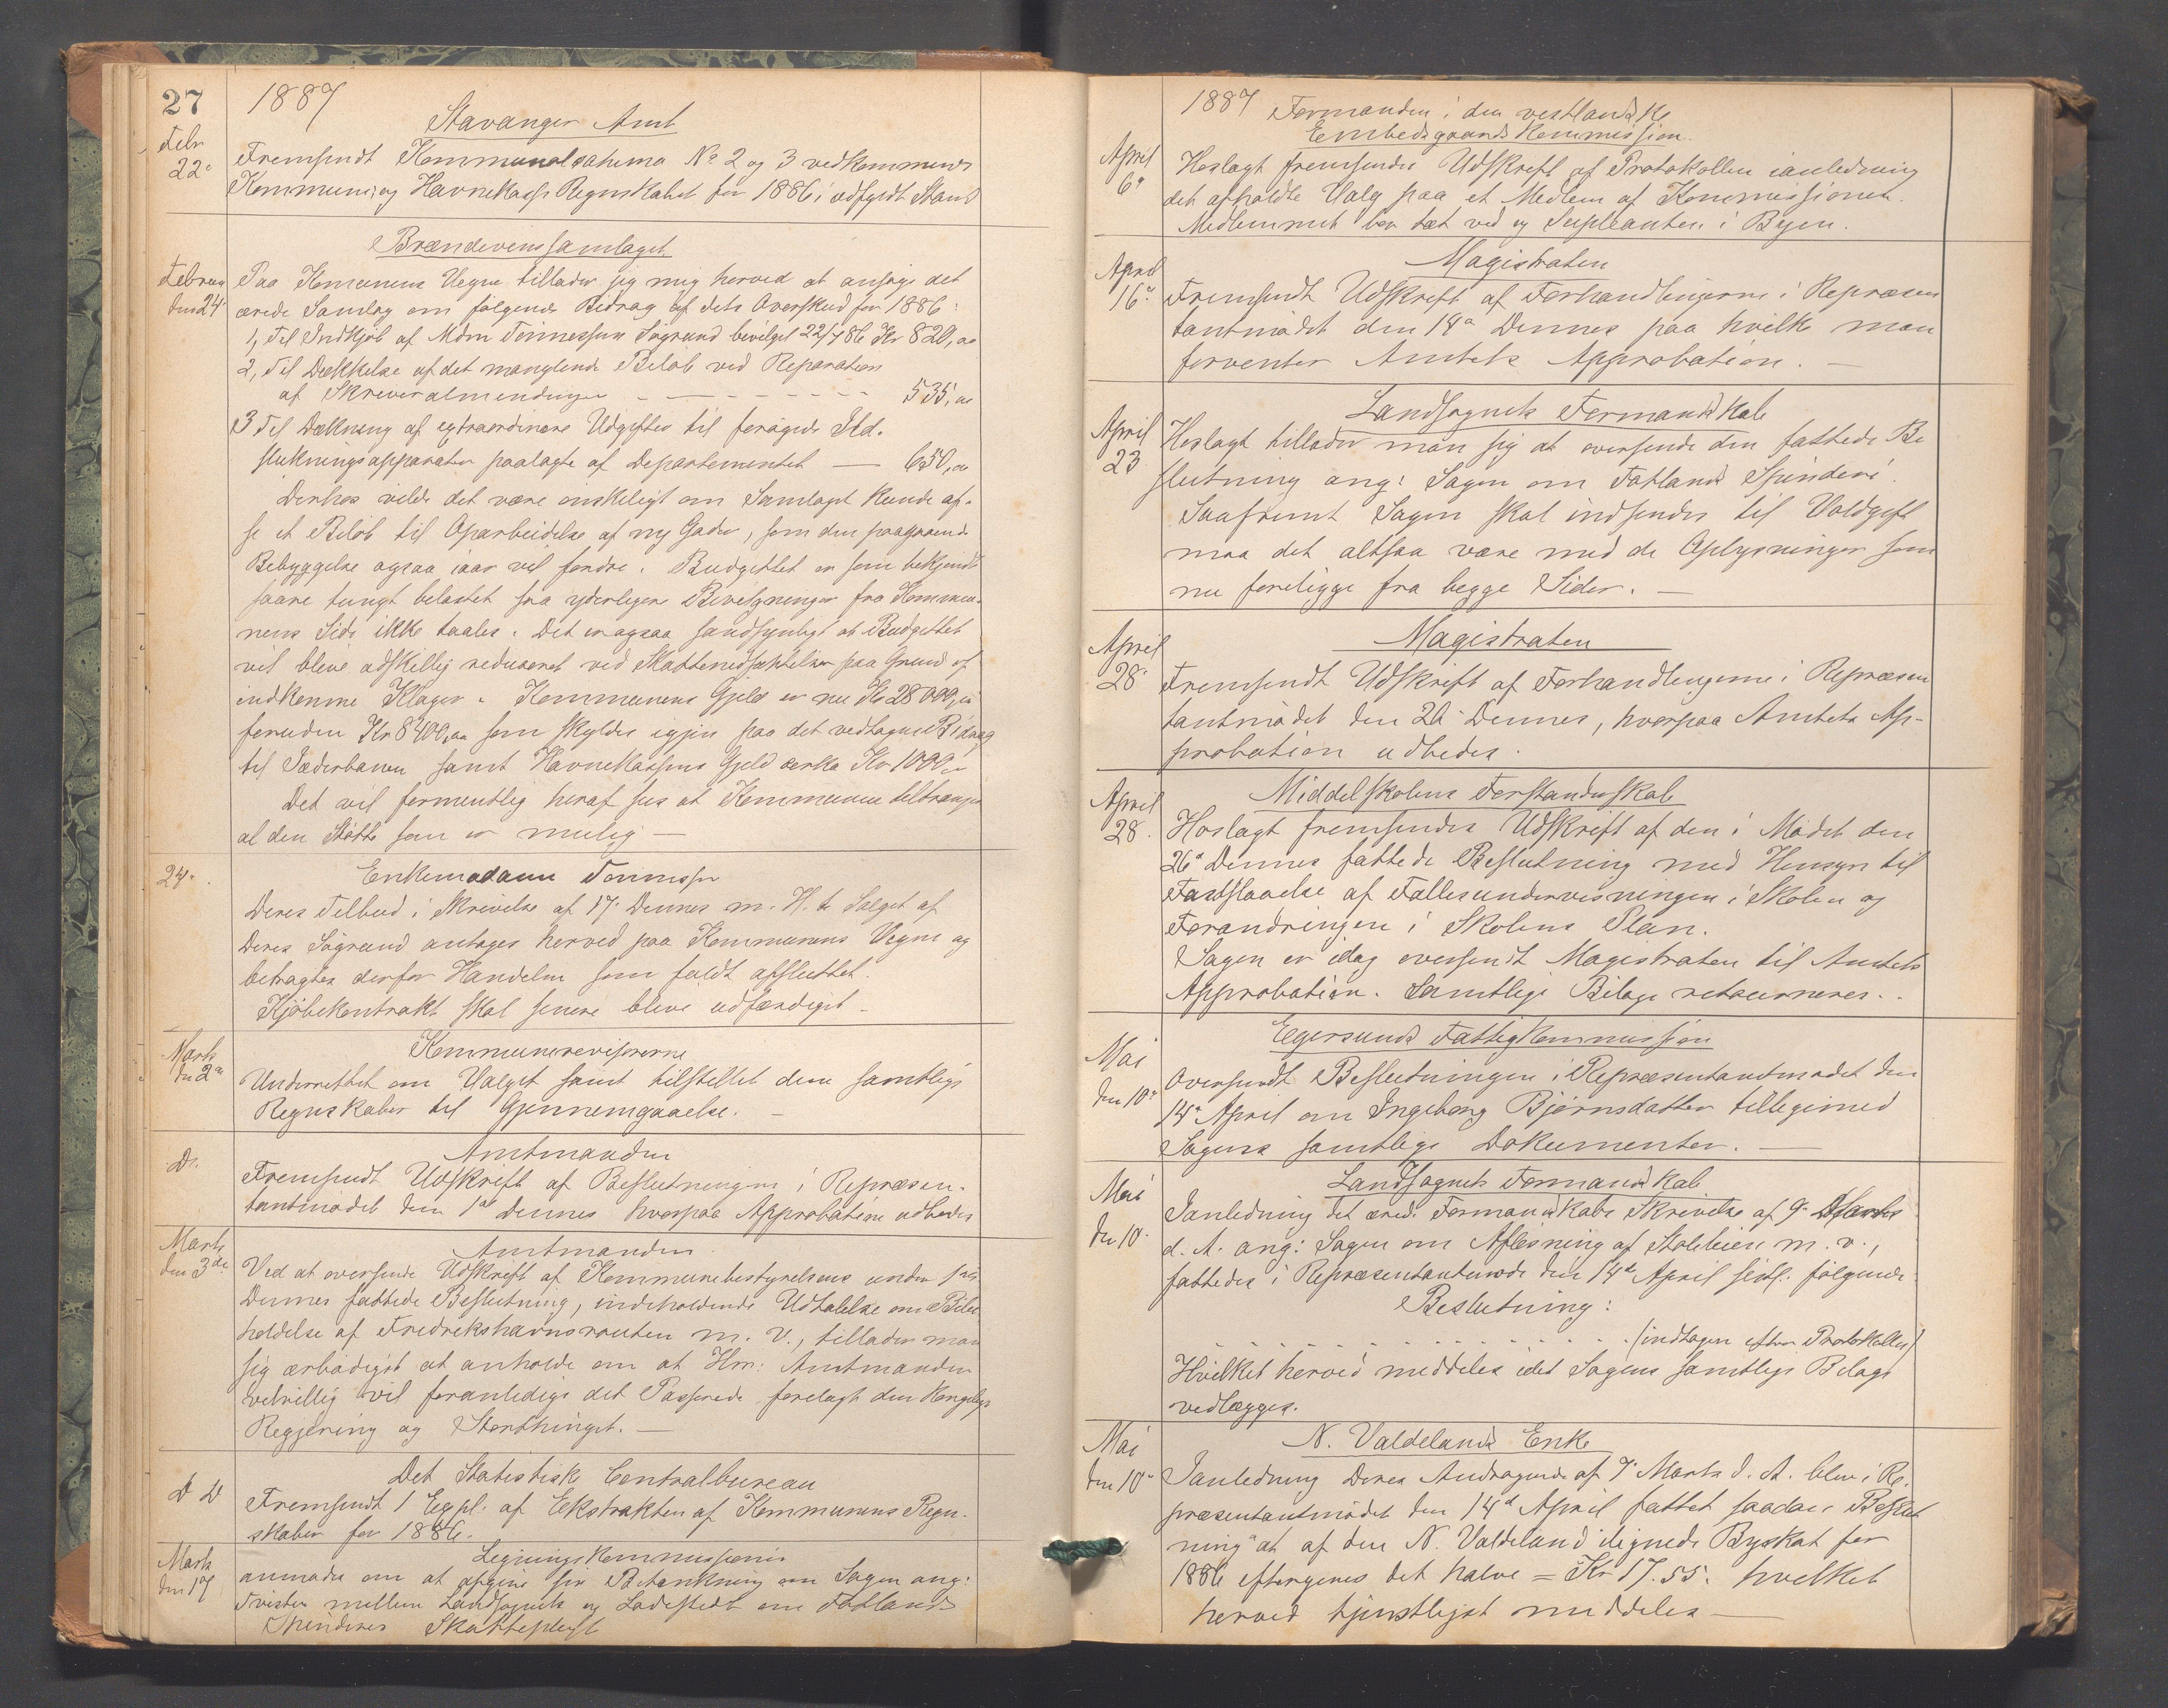 27
1887
Stavanger Amt
Febr
22a
Fremsendt Kommunalschema No 2 og 3 vedkommende
Kommune og Havnekasse Regnskabet for 1886 i udfyldt Stand
Brændevinssamlaget
Februar
den 24
Paa Kommunens Vegne tillader jeg mig herved at ansøge det
ærede Samlag om følgende Bidrag af dets Overskud for 1886:
1, Til Indkjøb af Mdm Tønnessens Søgrund bevilget 22/7 86 Kr 820,00
2, Til Dækkelse af det manglende Beløb ved Reparation
af Skriveralmendingen - - - - - - - 535,00
3 Til Dækning af extraordinære Udgifter til forøgede Ild-
slukningsapparater paalagte af Departementet — 650,00
Derhos vilde det være ønskeligt om Samlaget kunde af-
se et Beløb til Oparbeidelse af ny Gader, som den paagaaende
Bebyggelse ogsaa iaar vil fordre. Budgettet er som bekjendt
saare tungt belastet saa yderligere Bevilgninger fra Kommu-
nens Side ikke taales. Det er ogsaa sandsynligt at Budgettet
vil blive adskillig reduceret ved Skattenedsættelser paa Grund af
indkomne Klager. Kommunens Gjeld er nu Kr 28000,00
foruden Kr 8400,00 som skyldes igjen paa det vedtagne Bidrag
til Jæderbanen samt Havnekassens Gjeld cirka Kr 1000
Det vil formentlig heraf sees at Kommunen tiltrænger
al den Støtte som er mulig —
24
Enkemadam Tønnessen
Deres Tilbud i Skrivelse af 17 Dennes m. H. t. Salget af
Deres Søgrund antages herved paa Kommunens Vegne og
betragtes derfor Handelen som fuldt afsluttet.
Kjøbekontrakt skal senere blive udfærdiget –
Marts
den 2
Kommunerevisorerne
Underrettet om Valget samt tilstillet dem samtlige
Regnskaber til Gjennemgaaelse. –
Do.
Amtmanden
Fremsendt Udskrift af Beslutningen i Repræsen-
tantmødet den 1st Dennes hvorpaa Approbation udbedes
Marts
den 3die
Amtmanden
Ved at oversende Udskrift af Kommunebestyrelsens under 1ste
Dennes fattede Beslutning, indeholdende Udtalelse om Bibe-
holdelse af Fredrekshavnsrouten m. V., tillader man
sig ærbødigst at anholde om at Hrr: Amtmanden
velvillig vil foranledige det Passerede forelagt den Kongelige
Regjering og Storthinget. —
D D
Det Statistiske Centralbureau
Fremsendt 1 Expl. af Eekstrakten af Kommunens Regn-
skaber for 1886.
Marts
den 17
Ligningskommissionen
anmodet om at afgive sin Betænkning om Sagen ang:
Tvisten mellem Landsognet og Ladestedet om Fotlands
Spinderies Skattepligt
1887
Formanden i den vestlandske
Embedsgaards Kommission.
April
6te
Hoslagt fremsendes Udskrift af Protokollen ianledning
det afholdte Valg paa et Medlem af Kommissionen.
Medlemmet bor tæt ved og Supleanten i Byen.
Magistraten
April
16
Fremsendt Udskrift af Forhandlingerne i Repræsen
tantmødet den 14a Dennes paa hvilke man
forventer Amtets Approbation. —
Landsognets Formandskab
April
23
Hoslagt tillader man sig at oversende den fattede Be
slutning ang: Sagen om Fotlands Spinderi.
Saafremt Sagen skal indsendes til Voldgift
maa det altsaa være med de Oplysninger som
nu foreligge fra begge Sider. —
Magistraten
April
28
Fremsendt Udskrift af Forhandlingerne i Repræsen
tantmødet den 20 Dennes, hvorpaa Amtets Ap-
probation udbedes.
Middelskolens Forstanderskab
April
28.
Hoslagt fremsendes Udskrift af den i Mødet den
26a Dennes fattede Beslutning med Hensyn til
Fastslaaelse af Fællesundervisningen i Skolen og
Forandringen i Skolens Plan.
Sagen er idag oversendt Magistraten til Amtets
Approbation. Samtlige Bilage retourneres. .
Egersunds Fattigkommission
Mai
den 10
Oversendt Beslutningen i Repræsentantmødet den
14 April om Ingeborg Bjørnsdatter tilligemed
Sagens samtlige Dokumenter. —
Landsognets Formandskab
Mai
den 10
Ianledning det ærede Formandskabs Skrivelse af 9 Marts
d. A. ang: Sagen om Afløsning af m. v.,
fattedes i Repræsentantmøde den 14d April sidstl. følgende
Beslutning:
. . . . . . . . . . . . . . (indtagen efter Protokollen)
Hvilket herved meddeles idet Sagens samtlige Bilage
vedlægges.
N. Valdelands Enke
Mai
den 10
Ianledning Deres Andragende af 7 Marts d. A. blev i Re-
præsentantmødet den 14d April fattet saadan Beslut
ning "at af den N. Valdeland ilignede Byskat for
1886 eftergives det halve = Kr 17.55. hvilket
herved tjenstligst meddeles —